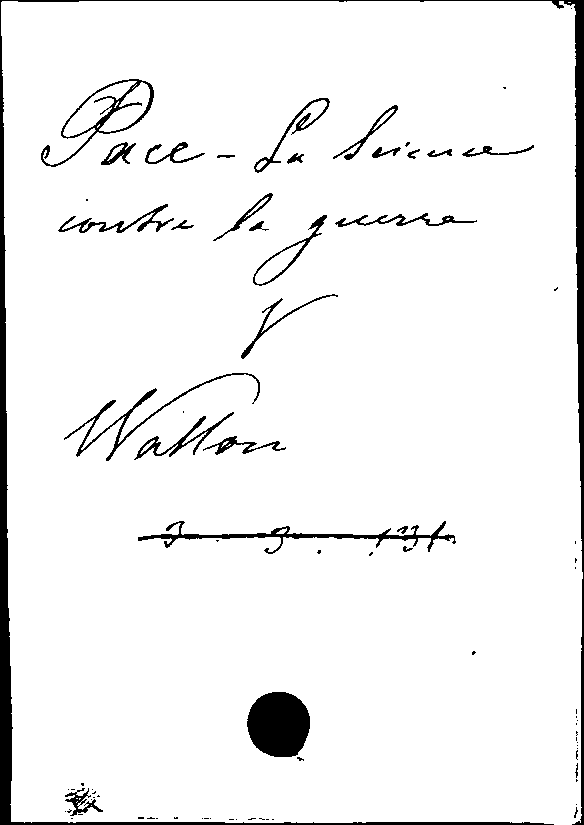 Pace - La Science
contre la guerre
V
Wallon
3 3. 131